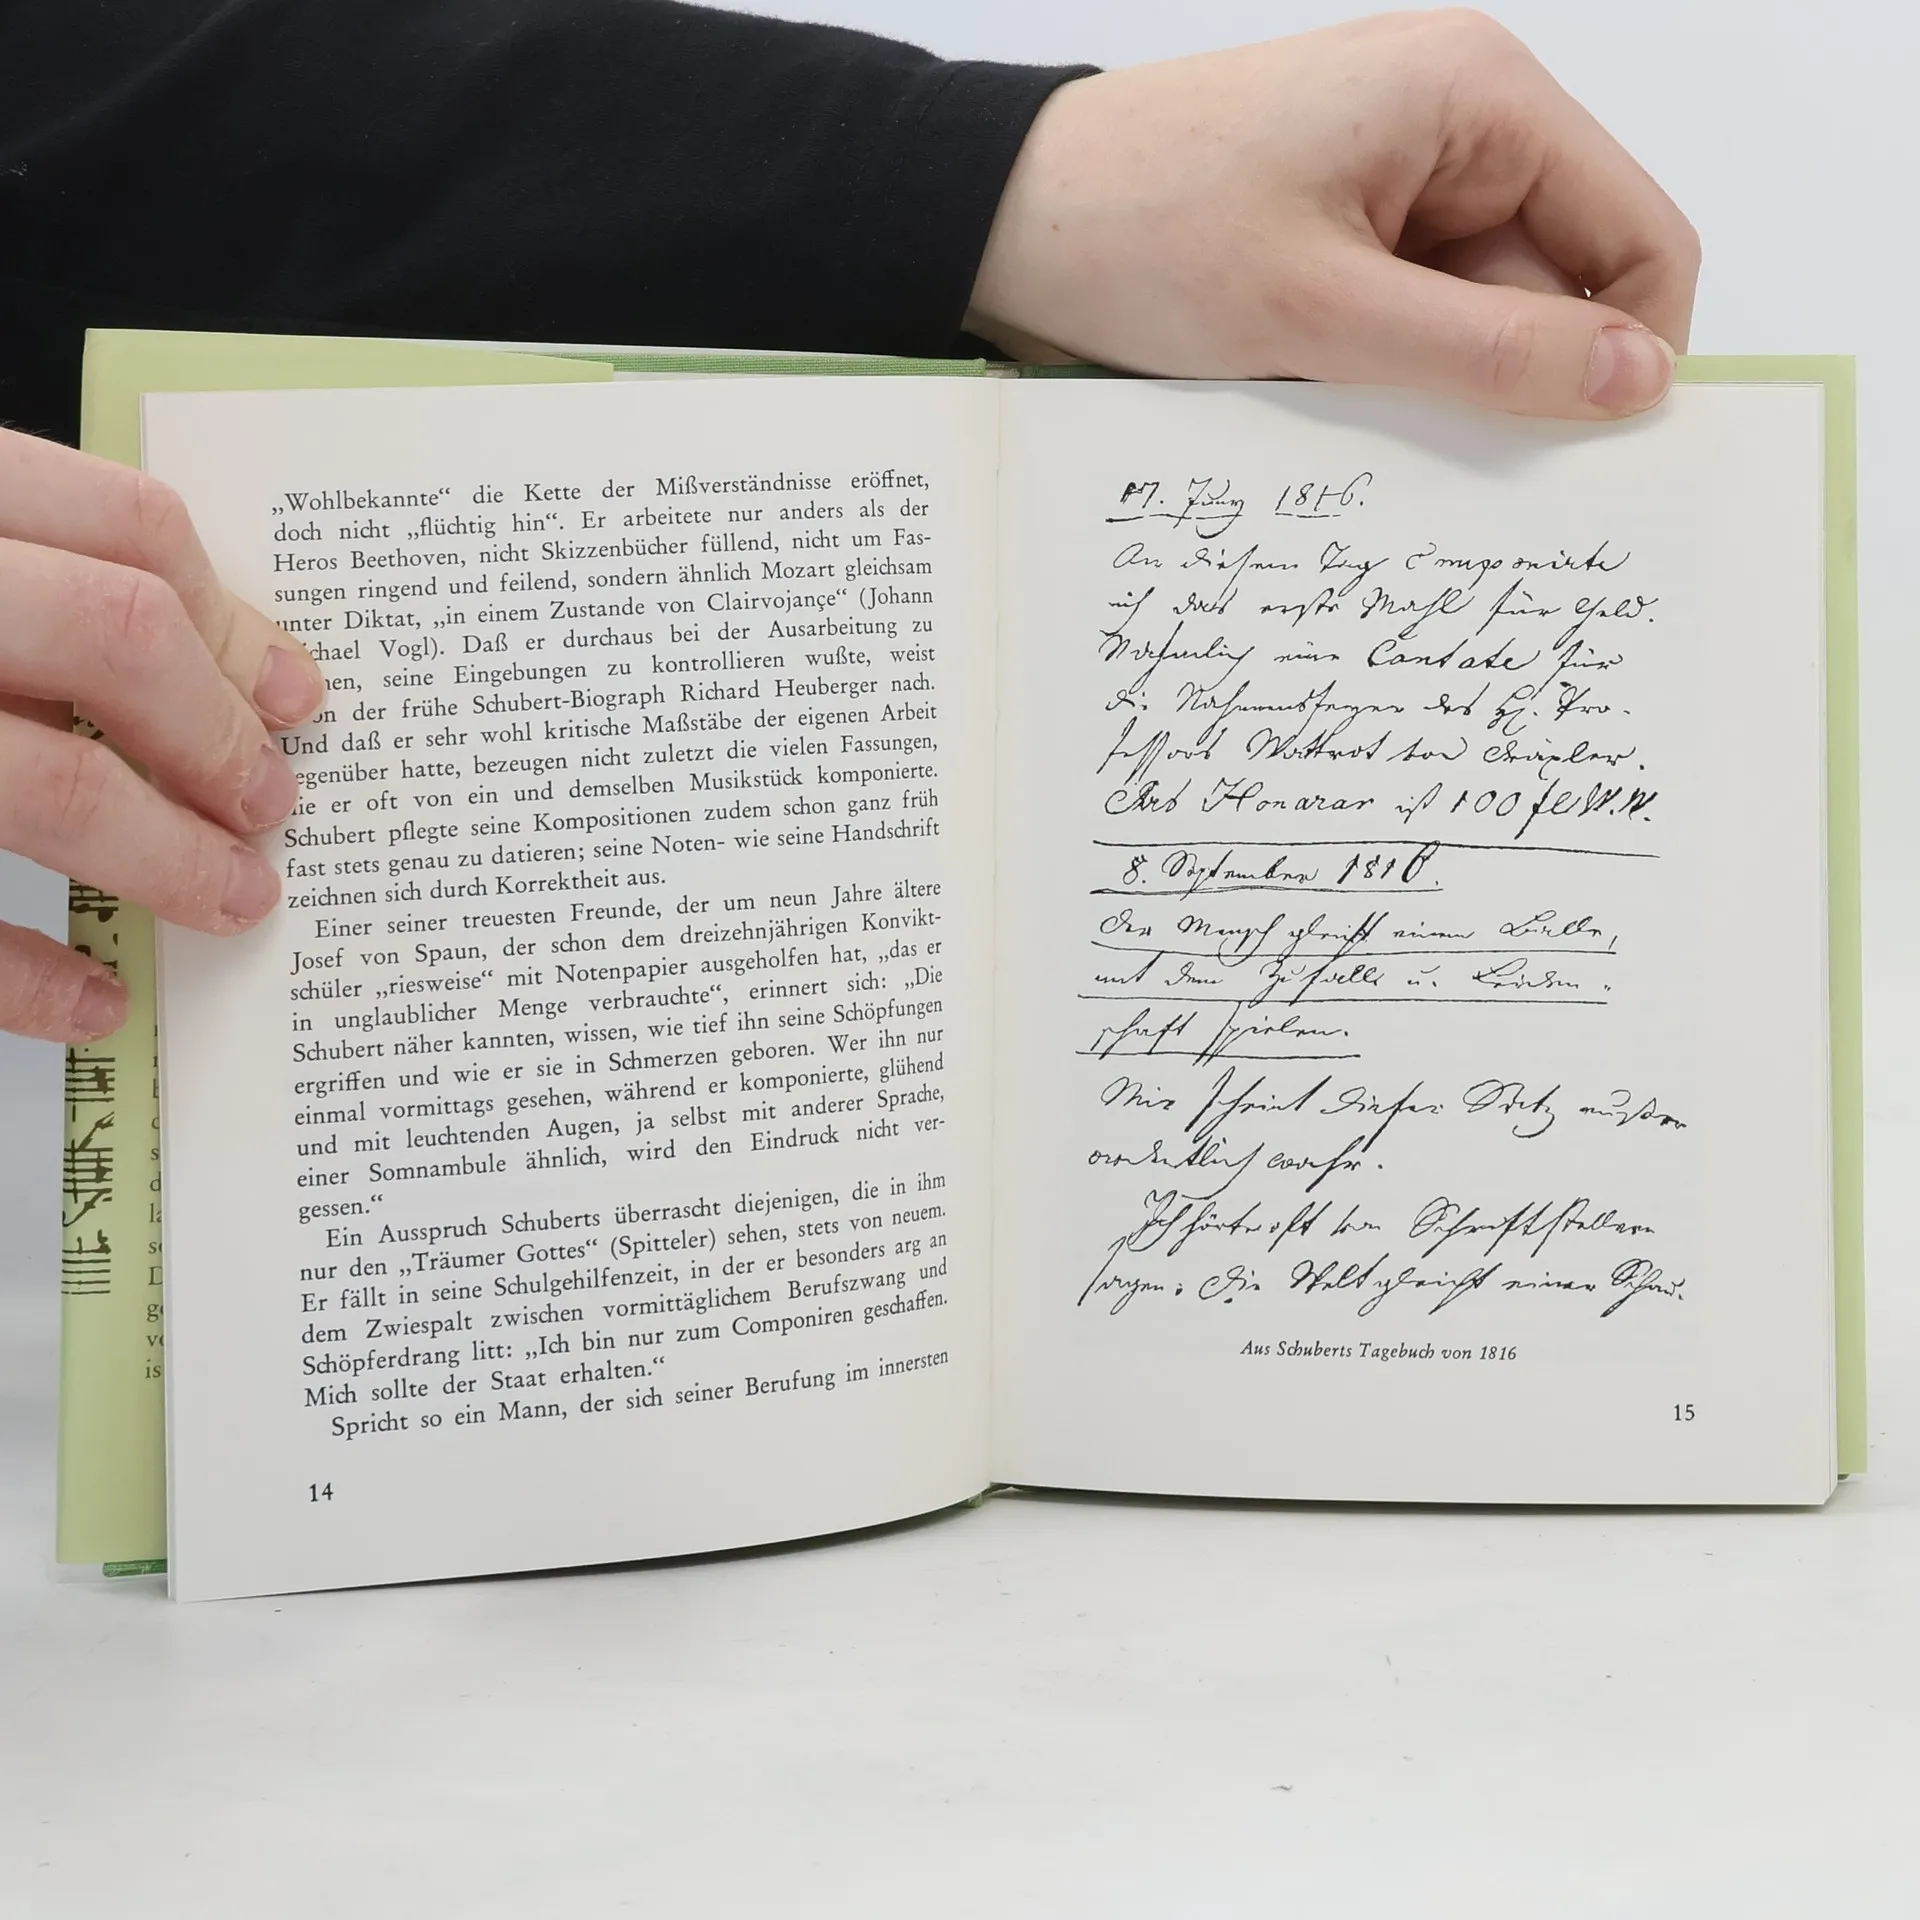 „Wohlbekannte“ die Kette der Mißverständnisse eröffnet,
doch nicht „flüchtig hin“. Er arbeitete nur anders als der
Heros Beethoven, nicht Skizzenbücher füllend, nicht um Fas-
sungen ringend und feilend, sondern ähnlich Mozart gleichsam
unter Diktat, „in einem Zustande von Clairvojançe“ (Johann
chael Vogl). Daß er durchaus bei der Ausarbeitung zu
nen, seine Eingebungen zu kontrollieren wußte, weist
on der frühe Schubert-Biograph Richard Heuberger nach.
Und daß er sehr wohl kritische Maßstäbe der eigenen Arbeit
egenüber hatte, bezeugen nicht zuletzt die vielen Fassungen,
die er oft von ein und demselben Musikstück komponierte.
Schubert pflegte seine Kompositionen zudem schon ganz früh
fast stets genau zu datieren; seine Noten- wie seine Handschrift
zeichnen sich durch Korrektheit aus.
Einer seiner treuesten Freunde, der um neun Jahre ältere
Josef von Spaun, der schon dem dreizehnjährigen Konvikt-
schüler „riesweise“ mit Notenpapier ausgeholfen hat, „das er
in unglaublicher Menge verbrauchte“, erinnert sich: „Die
Schubert näher kannten, wissen, wie tief ihn seine Schöpfungen
ergriffen und wie er sie in Schmerzen geboren. Wer ihn nur
einmal vormittags gesehen, während er komponierte, glühend
und mit leuchtenden Augen, ja selbst mit anderer Sprache,
einer Somnambule ähnlich, wird den Eindruck nicht ver-
gessen.“
Ein Ausspruch Schuberts überrascht diejenigen, die in ihm
nur den „Träumer Gottes“ (Spitteler) sehen, stets von neuem.
Er fällt in seine Schulgehilfenzeit, in der er besonders arg an
dem Zwiespalt zwischen vormittäglichem Berufszwang und
Schöpferdrang litt: „Ich bin nur zum Componiren geschaffen.
Mich sollte der Staat erhalten.“
Spricht so ein Mann, der sich seiner Berufung im innersten
14
17. Juny 1816.
An diesem Tag componirte
ich das erste Mahl für Geld.
Nähmlich eine Cantate für
die Nahmensfeyer des H. Pro-
fessors Wattrot von Dräxler.
Das Honorar ist 100 fl W.W.
8. September 1816.
Der Mensch gleicht einem Balle,
mit dem Zufall u. Leiden-
schaft spielen.
Mir scheint dieser Satz außer-
ordentlich wahr.
Ich hörte oft von Schriftstellern
sagen: Die Welt gleicht einer Schau-
Aus Schuberts Tagebuch von 1816
15